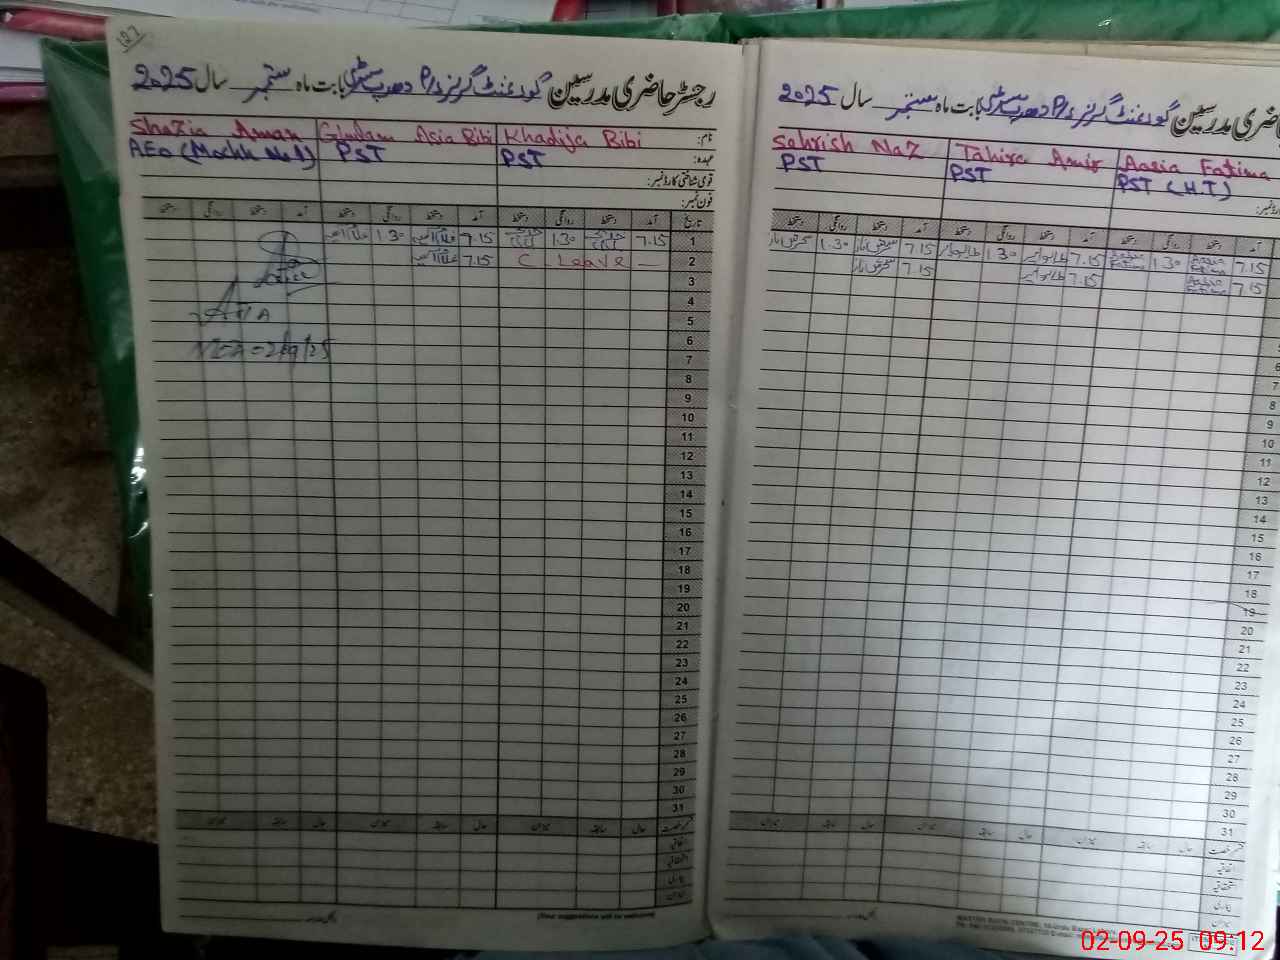 127
رجسٹر حاضری مدرسین گورنمنٹ گرلز P/s بابت ماہ ستمبر سال 2025
نام: Khadija Bibi Ghulam Asia Bibi Shazia Aman
عہدہ: PST PST AEO
قومی شناختی کارڈ نمبر:
فون نمبر:
تاریخ آمد دستخط روانگی دستخط آمد دستخط روانگی دستخط آمد دستخط روانگی دستخط
1 7.15 1.30 7.15 1.30
2 — C Leave 7.15
3
4
5
6
7
8
9
10
11
12
13
14
15
16
17
18
19
20
21
22
23
24
25
26
27
28
29
30
31
قسم رخصت حال سابقہ میزان حال سابقہ میزان حال سابقہ میزان
اتفاقیہ
استحقاقیہ
بیماری
میزان
(Your suggestions will be welcome)
حاضری مدرسین گورنمنٹ گرلز P/s بابت ماہ ستمبر سال 2025
Aasia Fatima Tahira Amir Sehrish Naz
PST (H.T) PST PST
آمد دستخط روانگی دستخط آمد دستخط روانگی دستخط آمد دستخط روانگی دستخط
7.15 Aasia Fatima 1.30 Aasia Fatima 7.15 1.30 7.15 سحرش ناز 1.30 سحرش ناز
7.15 Aasia Fatima 7.15 7.15 سحرش ناز
6
7
8
9
10
11
12
13
14
15
16
17
18
19
20
21
22
23
24
25
26
27
28
29
30
31
قسم رخصت حال سابقہ میزان حال سابقہ میزان حال سابقہ میزان
اتفاقیہ
استحقاقیہ
بیماری
میزان
02-09-25 09:12